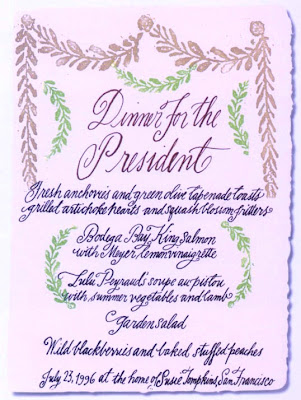 Dinner for the
President
Fresh anchovies and green olive tapenade toasts
grilled artichoke hearts and squash blossom fritters
Bodega Bay King Salmon
with Meyer lemon vinaigrette
Lulu Peyraud's soupe au pistou
with summer vegetables and lamb
Garden salad
Wild blackberries and baked stuffed peaches
July 23, 1996 at the home of Susie Tompkins, San Francisco